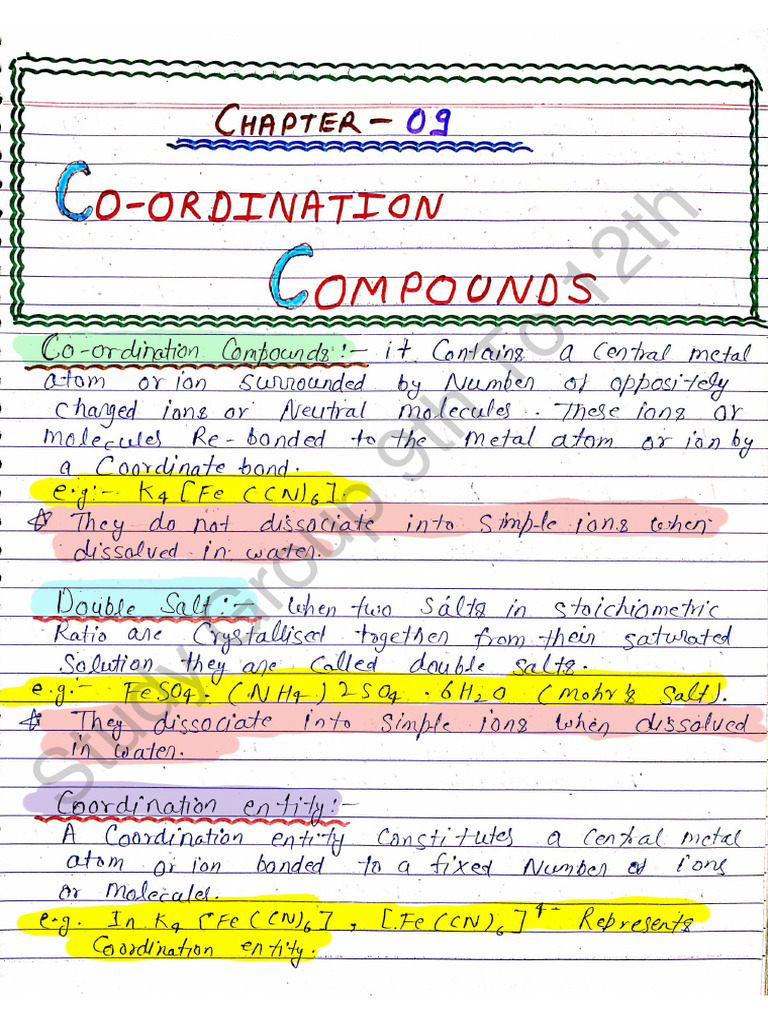 CHAPTER - 09
CO-ORDINATION
COMPOUNDS
Co-ordination Compounds :- it Contains a central metal
atom or ion surrounded by Number of oppositely
charged ions or Neutral molecules. These ions or
molecules Re-bonded to the metal atom or ion by
a Coordinate bond.
e.g:- K4 [Fe (CN)6].
☆ They do not dissociate into Simple ions when
dissolved in water.
Double Salt :- When two salts in stoichiometric
Ratio are Crystallised together from their saturated
Solution they are called double salts.
e.g:- FeSO4 . (NH4)2SO4 . 6H2O (mohr's Salt).
☆ They dissociate into simple ions when dissolved
in water.
Coordination entity :-
A Coordination entity constitutes a central metal
atom or ion bonded to a fixed Number of ions
or molecules.
e.g. In K4 [Fe (CN)6], [Fe (CN)6]4- Represents
Coordination entity.
Study Group 9th To 12th